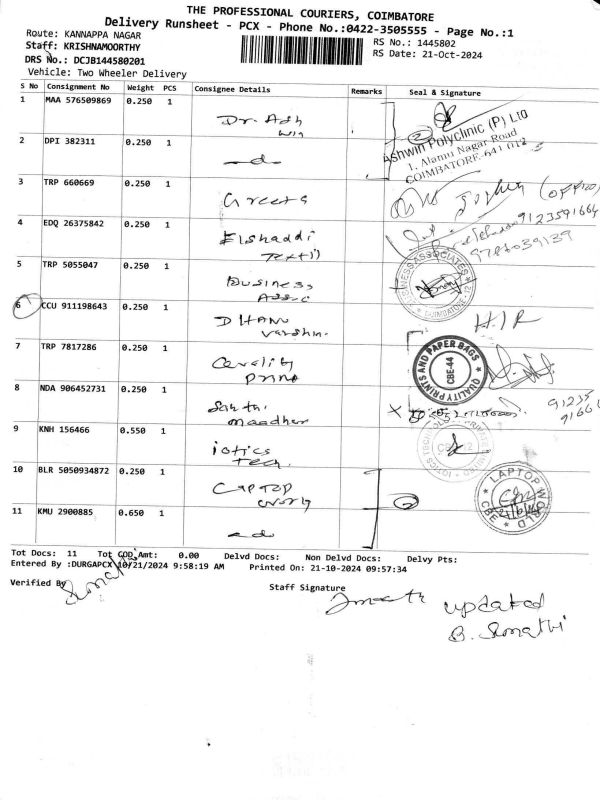 THE PROFESSIONAL COURIERS, COIMBATORE
Delivery Runsheet - PCX - Phone No.:0422-3505555 - Page No.:1
Route: KANNAPPA NAGAR
RS No.: 1445802
Staff: KRISHNAMOORTHY
RS Date: 21-Oct-2024
DRS No.: DCJB144580201
Vehicle: Two Wheeler Delivery
S No Consignment No Weight PCS Consignee Details Remarks Seal & Signature
1 MAA 576509869 0.250 1 Dr. Ash
win
2
Ashwin Polyclinic (P) Ltd
1, Alamu Nagar Road
COIMBATORE-641 012
2 DPI 382311 0.250 1
3 TRP 660669 0.250 1 Greets
4 EDQ 26375842 0.250 1 Elshaddi
Textil
9123591664
9787039139
5 TRP 5055047 0.250 1 Business
Assc
BUSINESS ASSOCIATES
COIMBATORE-12
6 CCU 911198643 0.250 1 DHANU
Varshin
HIR
7 TRP 7817286 0.250 1 Quality
Print
QUALITY PRINTS AND PAPER BAGS
CBE-44
8 NDA 906452731 0.250 1 Sakthi
Maadhan
X
91235
9166
9 KNH 156466 0.550 1 iotics
Tech.
10 BLR 5050934872 0.250 1 LAPTOP
World
2
LAPTOP WORLD
CBE
11 KMU 2900885 0.650 1
Tot Docs: 11 Tot COD Amt: 0.00 Delvd Docs: Non Delvd Docs: Delvy Pts:
Entered By :DURGAPCX 10/21/2024 9:58:19 AM Printed On: 21-10-2024 09:57:34
Verified By
Staff Signature
updated
B. Sumathi